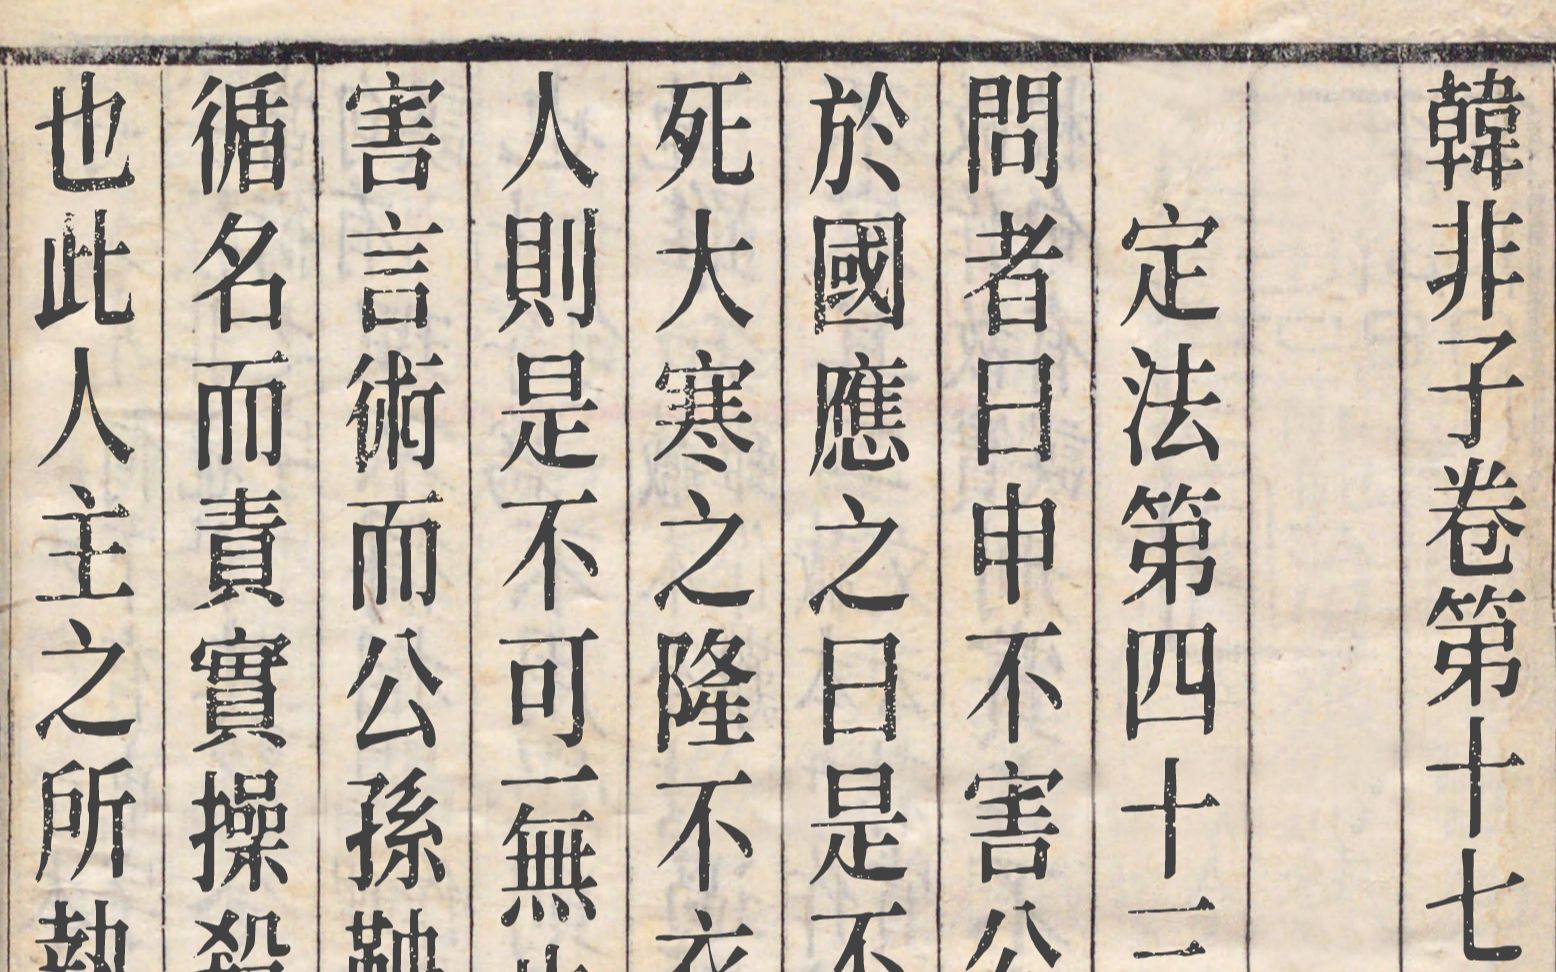 韓非子卷第十七
定法第四十三
問者曰申不害公
於國應之曰是不
死大寒之隆不衣
人則是不可一無
害言術而公孫鞅
循名而責實操殺
也此人主之所執